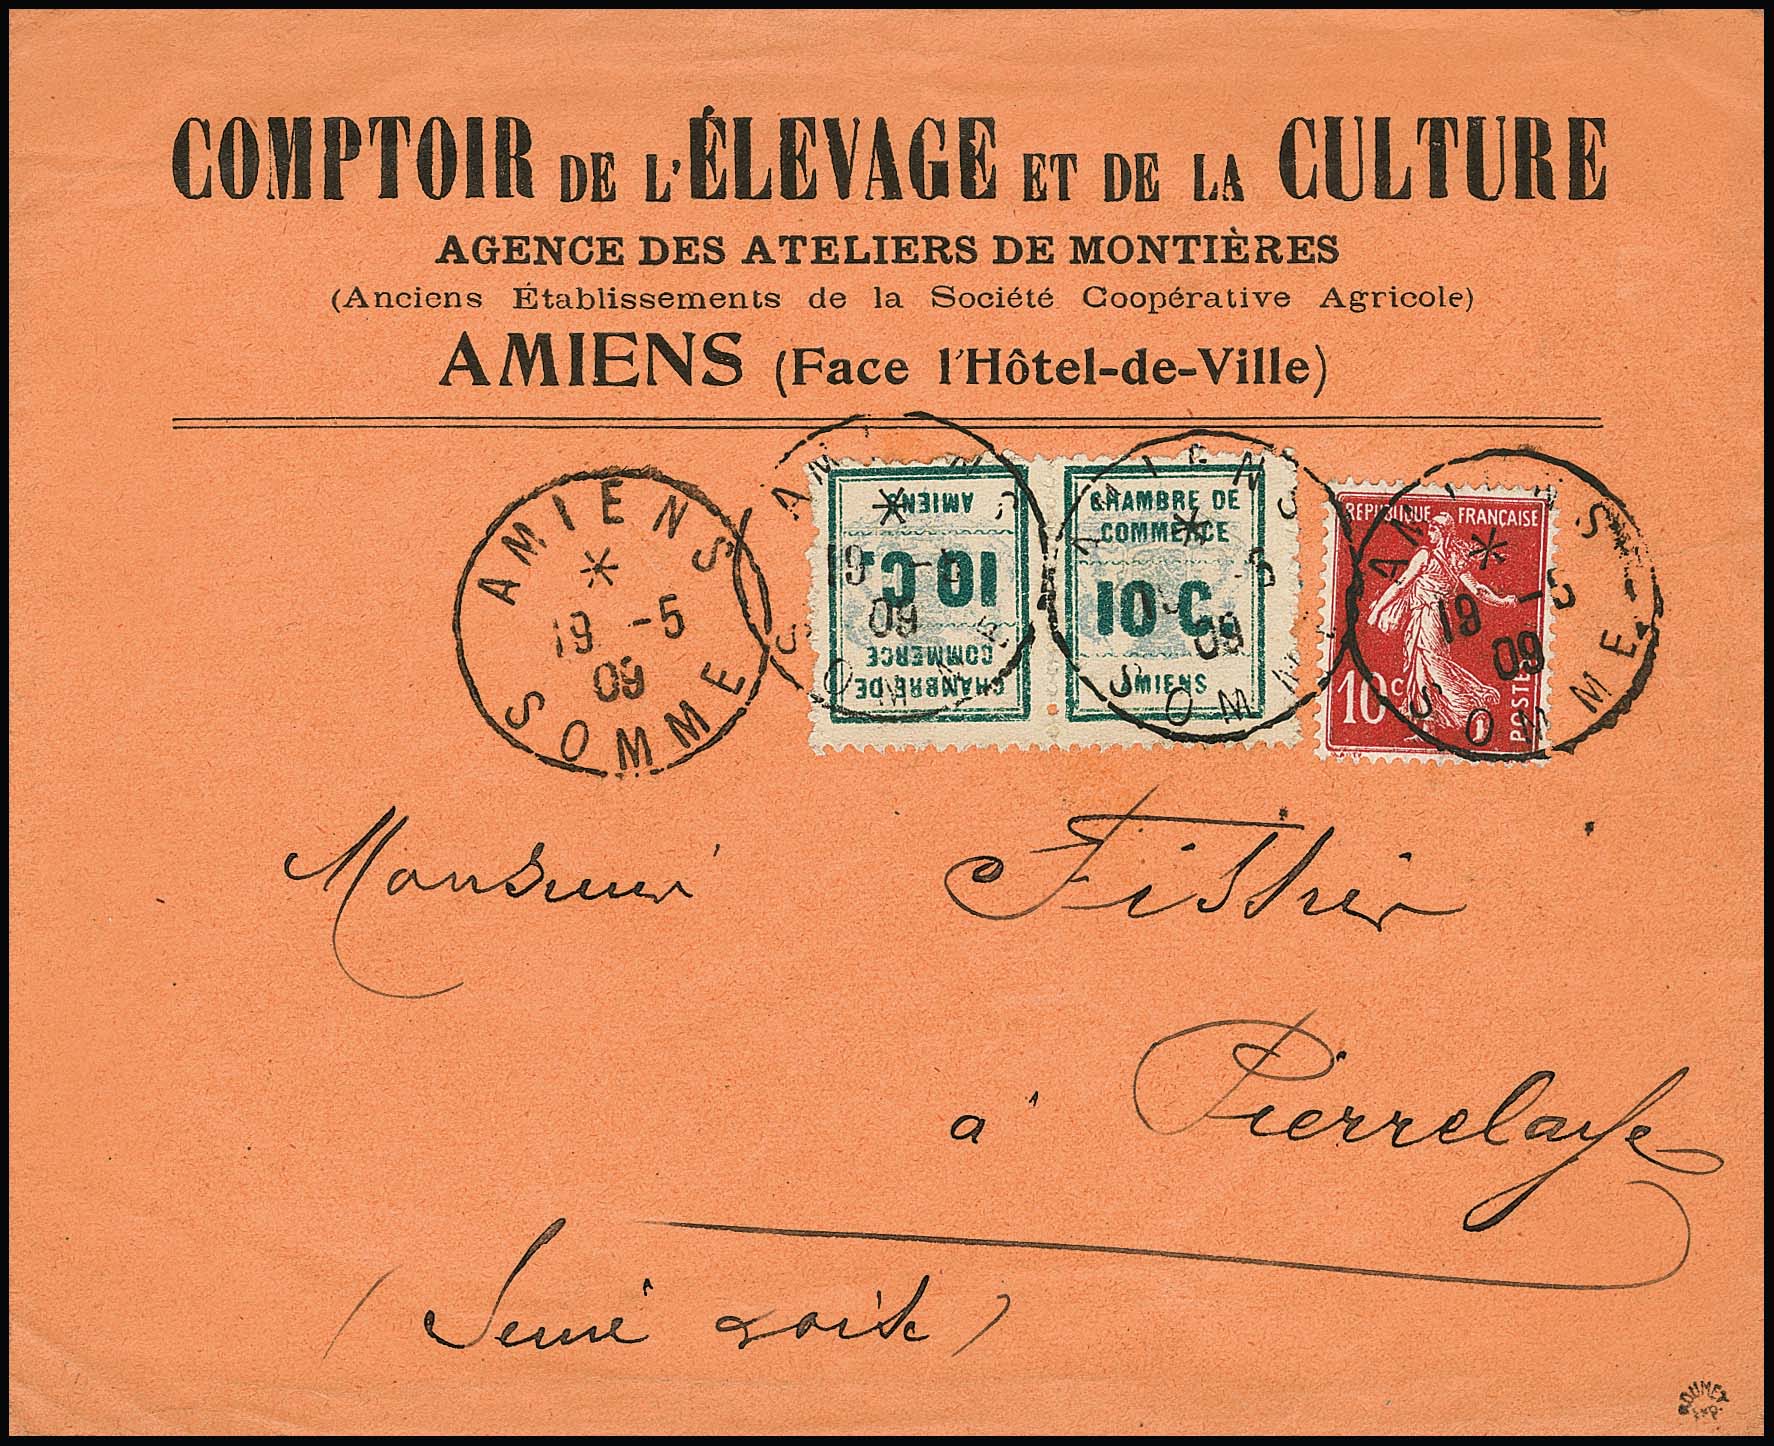 COMPTOIR DE L'ÉLEVAGE ET DE LA CULTURE
AGENCE DES ATELIERS DE MONTIÈRES
(Anciens Établissements de la Société Coopérative Agricole)
AMIENS (Face l'Hôtel-de-Ville)
AMIENS
* 
19 -5
09
SOMME
AMIENS
*
19 -5
09
SOMME
CHAMBRE DE
COMMERCE
10 C.
AMIENS
AMIENS
*
19 -5
09
SOMME
CHAMBRE DE
COMMERCE
10 C.
AMIENS
AMIENS
*
19 -5
09
SOMME
REPUBLIQUE FRANÇAISE
10c
POSTES
Monsieur
à Pierrelaye
(Seine & Oise)